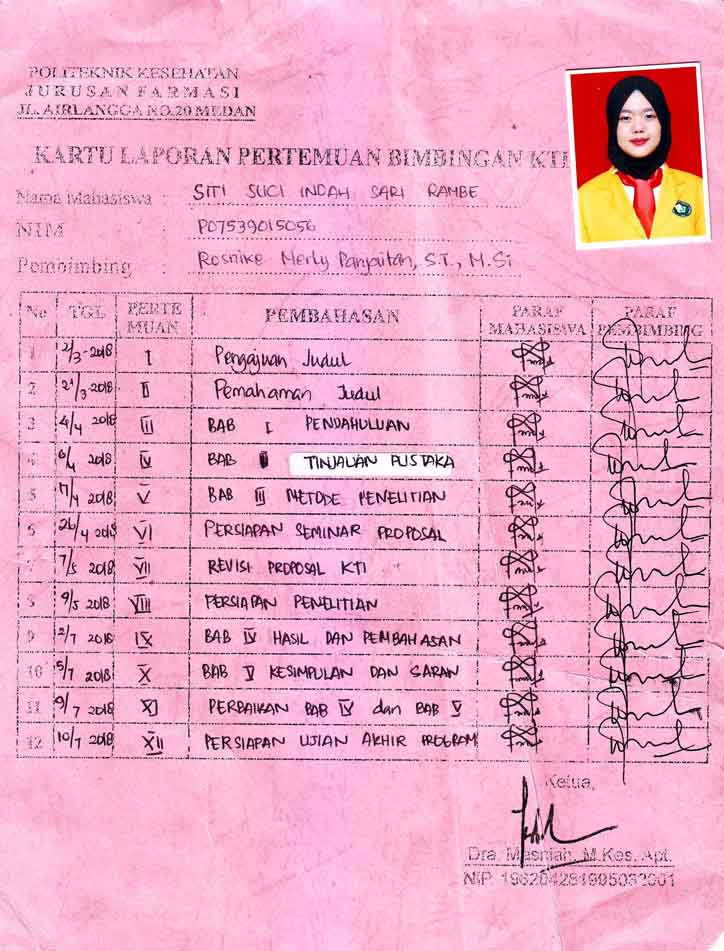 POLITEKNIK KESEHATAN
JURUSAN FARMASI
JL. AIRLANGGA NO.20 MEDAN
KARTU LAPORAN PERTEMUAN BIMBINGAN KTI
Nama Mahasiswa : SITI SUCI INDAH SARI RAMBE
NIM : P07539015056
Pembimbing : Rosnike Merly Panjaitan, S.T., M.Si
No TGL PERTEMUAN PEMBAHASAN PARAF MAHASISWA PARAF PEMBIMBING
1 2/3-2018 I Pengajuan Judul
2 21/3-2018 II Pemahaman Judul
3 4/4 2018 III BAB I PENDAHULUAN
4 6/4 2018 IV BAB II TINJAUAN PUSTAKA
5 17/4 2018 V BAB III METODE PENELITIAN
6 26/4 2018 VI PERSIAPAN SEMINAR PROPOSAL
7 7/5 2018 VII REVISI PROPOSAL KTI
8 9/5 2018 VIII PERSIAPAN PENELITIAN
9 2/7 2018 IX BAB IV HASIL DAN PEMBAHASAN
10 5/7 2018 X BAB V KESIMPULAN DAN SARAN
11 9/7 2018 XI PERBAIKAN BAB IV dan BAB V
12 10/7 2018 XII PERSIAPAN UJIAN AKHIR PROGRAM
Ketua,
Dra. Masniah, M.Kes, Apt.
NIP. 196204281995032001